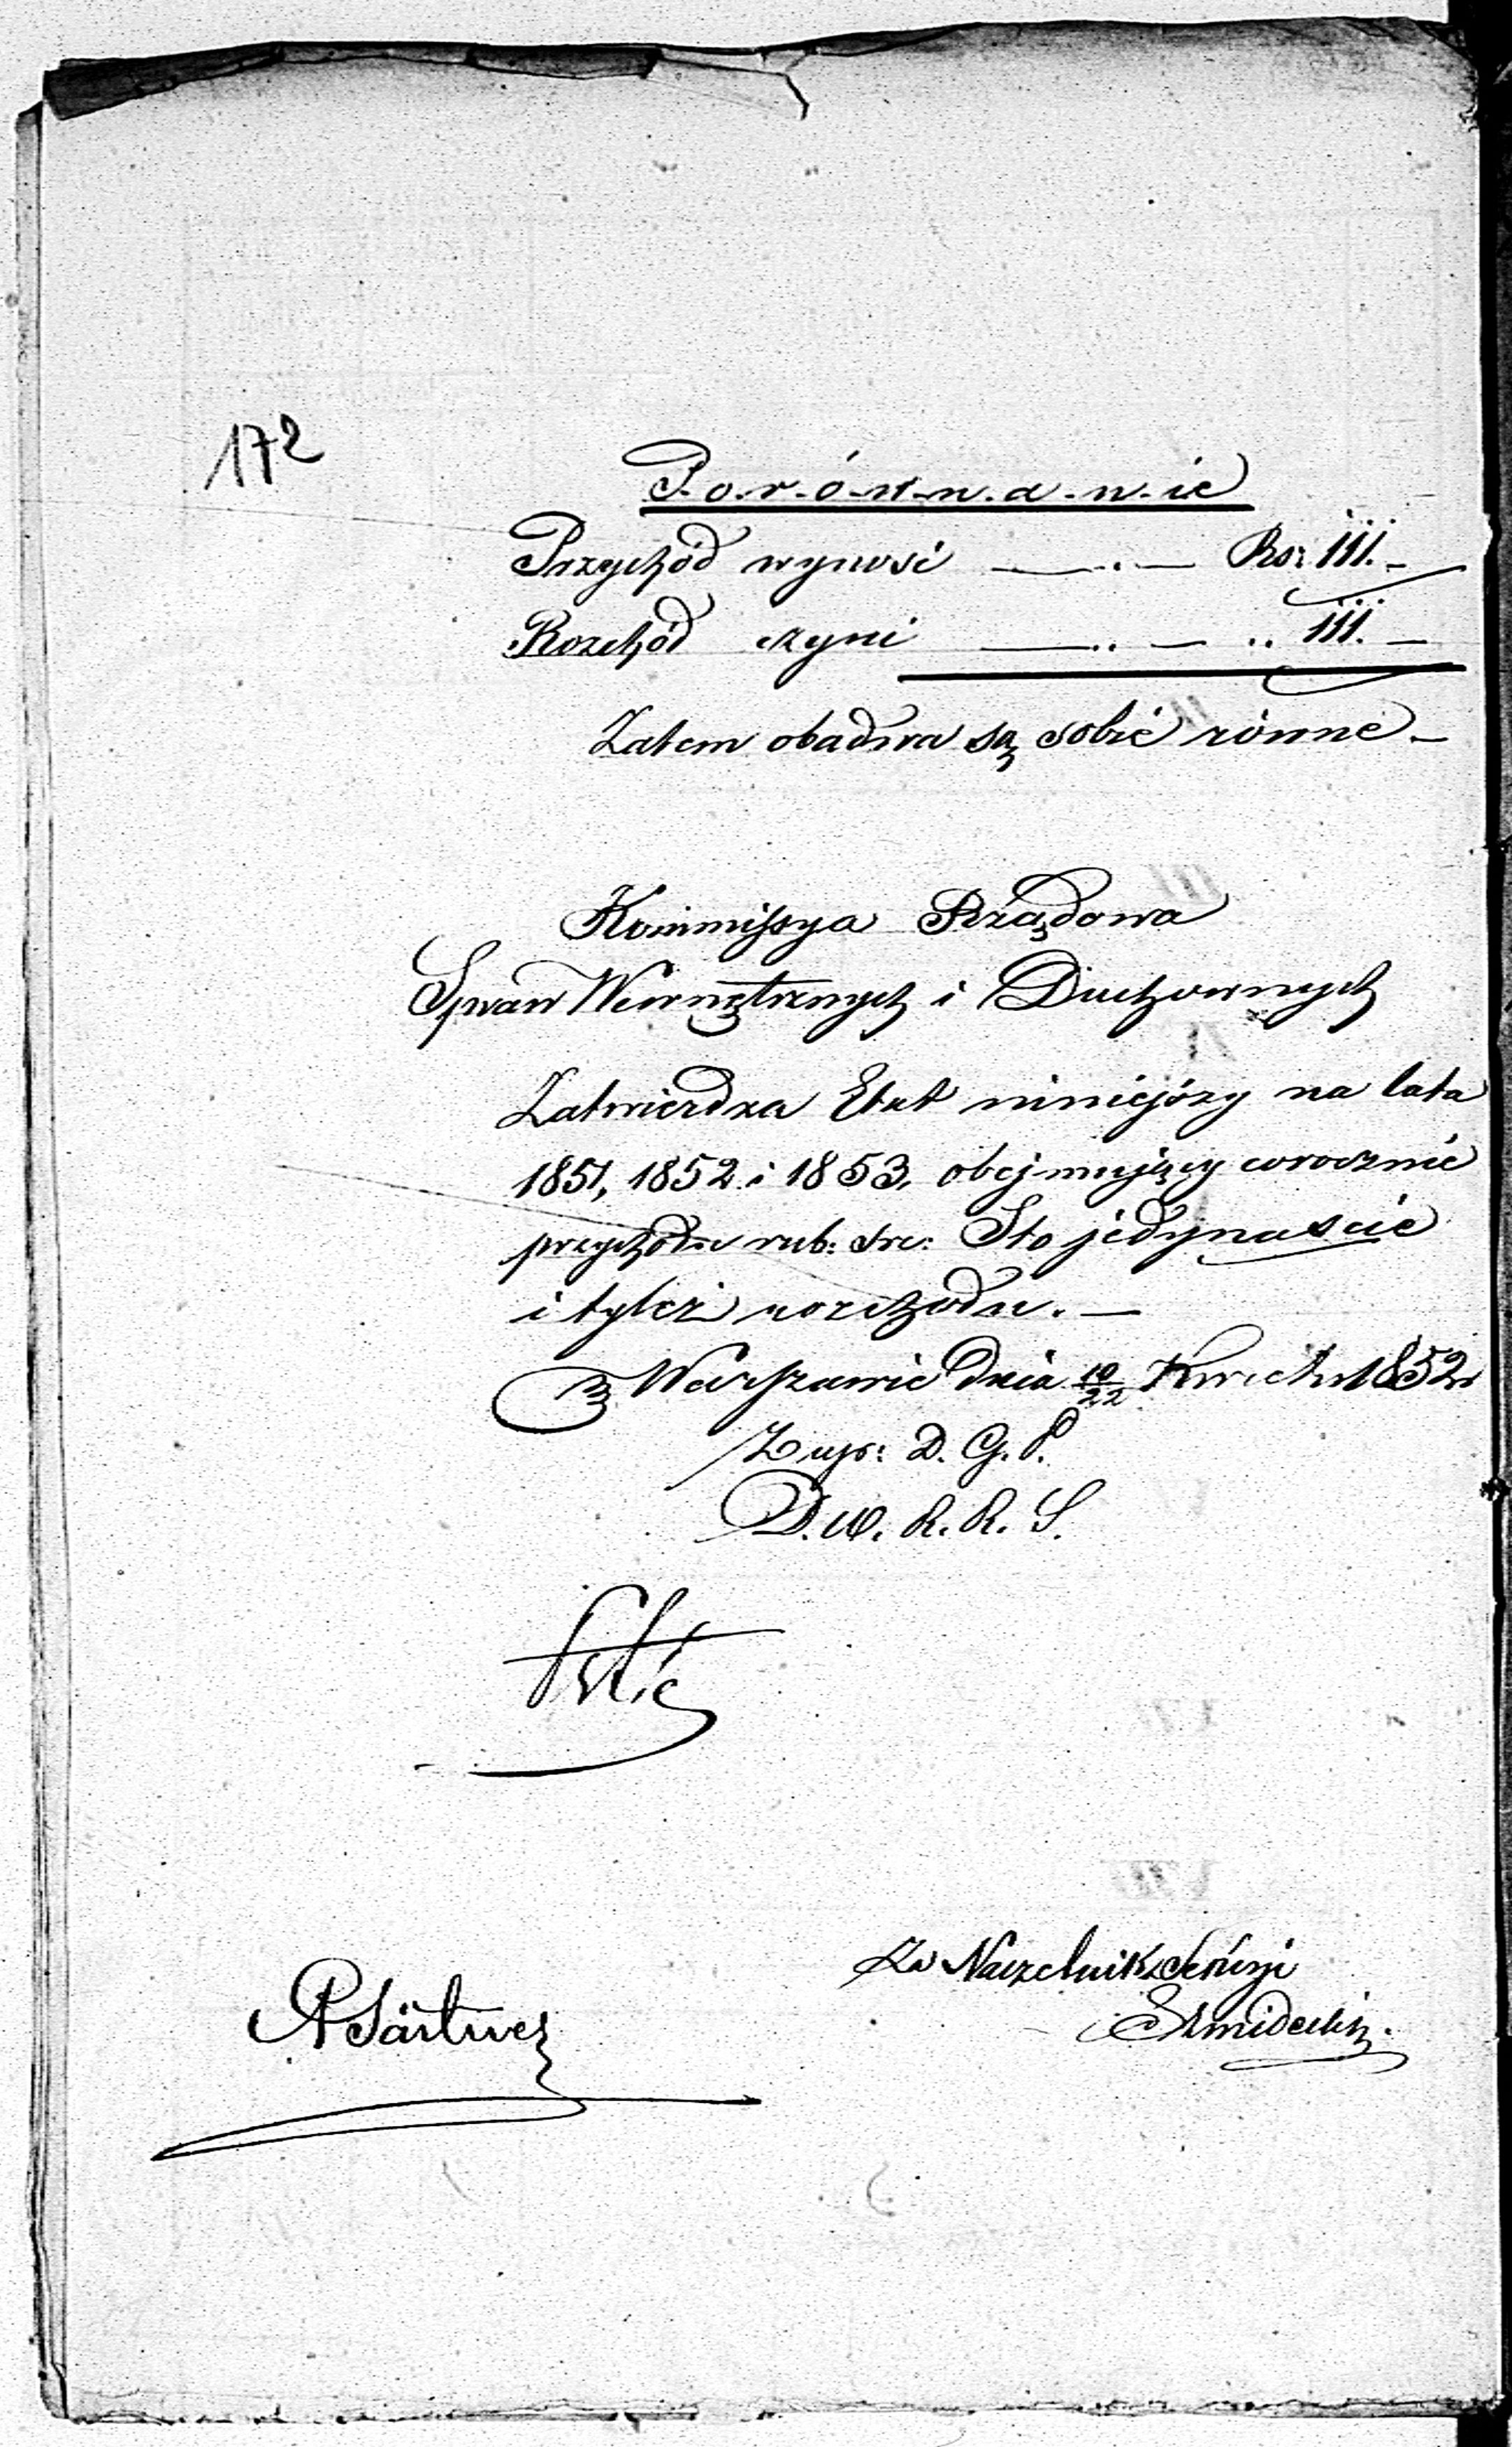 172
P-o-r-ó-w-n-a-n-ie
Przychód wynosi —..— Rs: 111.—
Rozchód czyni —..— .. 111.—
Zatem obadwa są sobie równe —
Kommissya Rządowa
Spraw Wewnętrznych i Duchownych
Zatwierdza Etat niniejszy na lata
1851, 1852 i 1853, obejmujący corocznie
przychodu rub: sre: Sto jedynaście
i tyleż rozchodu. —
w Warszawie dnia 10/22 Kwietn 1852
Z up: D. G. P.
D. W. R. R. S.
Za Naczelnika Sekcyi